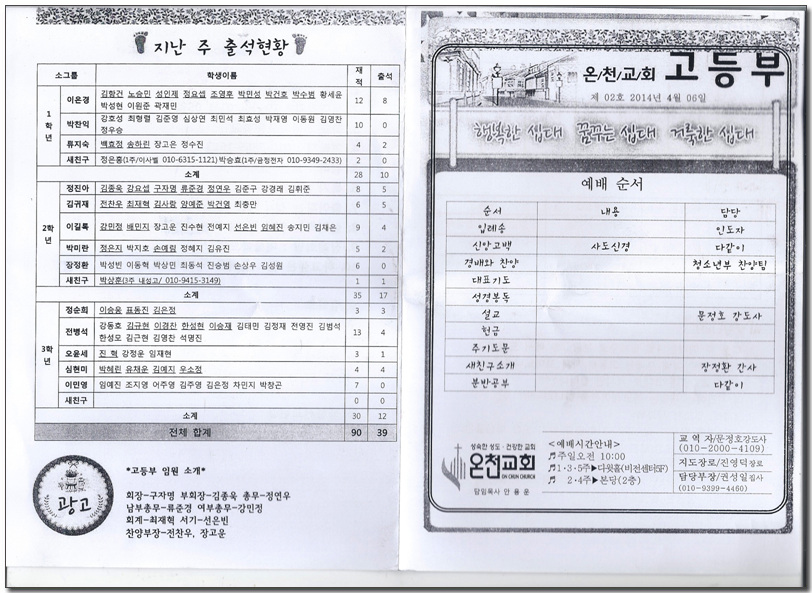 지난 주 출석현황
소그룹 학생이름 재적 출석
1학년
이은경 김함건 노승민 성민제 정요섭 조영후 박민성 박건호 박수범 황세윤 12 8
박성현 이원준 곽재민
박찬익 강호성 최형렬 김준영 심상연 최민석 최효성 박재영 이동원 김영찬 10 0
정우승
류지숙 백효정 송하린 장고은 정수진 4 2
새친구 정은홍(1주/이사벨 010-6315-1121)박승효(1주/금정전자 010-9349-2433) 2 0
소계 28 10
2학년
정진아 김종욱 강요셉 구자명 류준경 정연우 김준구 강경래 김휘준 8 5
김귀재 전찬우 최재혁 김사람 양예준 박건영 최중만 6 5
이길록 강민정 배민지 장고운 진수현 전예지 선은빈 임혜진 송지민 김채은 9 4
박미란 정은지 박지호 손예림 정혜지 김유진 5 2
장정환 박성빈 이동혁 박상민 최동석 진승범 손상우 김성원 6 0
새친구 박상훈(3주 내성고/ 010-9415-3149) 1 1
소계 35 17
3학년
정순희 이승윤 표동진 김은정 3 3
전병석 강동호 김규현 이경찬 한성현 이승재 김태민 김정재 전영진 김범석 13 4
한성모 김근현 김영찬 석명진
오윤세 진 혁 강정윤 임재현 3 1
심현미 박혜린 유채운 김예지 우소정 4 4
이민영 임예진 조지영 어주영 김주영 김은정 차민지 박창곤 7 0
새친구 0 0
소계 30 12
전체 합계 90 39
광고
*고등부 임원 소개*
회장-구자명 부회장-김종욱 총무-정연우
남부총무-류준경 여부총무-강민정
회계-최재혁 서기-선은빈
찬양부장-전찬우, 장고운
온/천/교/회 고등부
제 02호 2014년 4월 06일
행복한 쉽대 꿈꾸는 쉽대 거룩한 쉽대
예배 순서
순서 내용 담당
입례송 인도자
신앙고백 사도신경 다같이
경배와 찬양 청소년부 찬양팀
대표기도
성경봉독
설교 문정호 강도사
헌금
주기도문
새친구소개 장정환 간사
분반공부 다같이
성숙한 성도·건강한 교회
온천교회
ON CHUN CHURCH
담임목사 안 용 운
<예배시간안내>
♬주일오전 10:00
♬1·3·5주▶다윗홀(비전센터5F)
♬ 2·4주▶본당(2층)
교 역 자/문정호강도사
(010-2000-4109)
지도장로/진영덕장로
담당부장/권성일집사
(010-9399-4460)